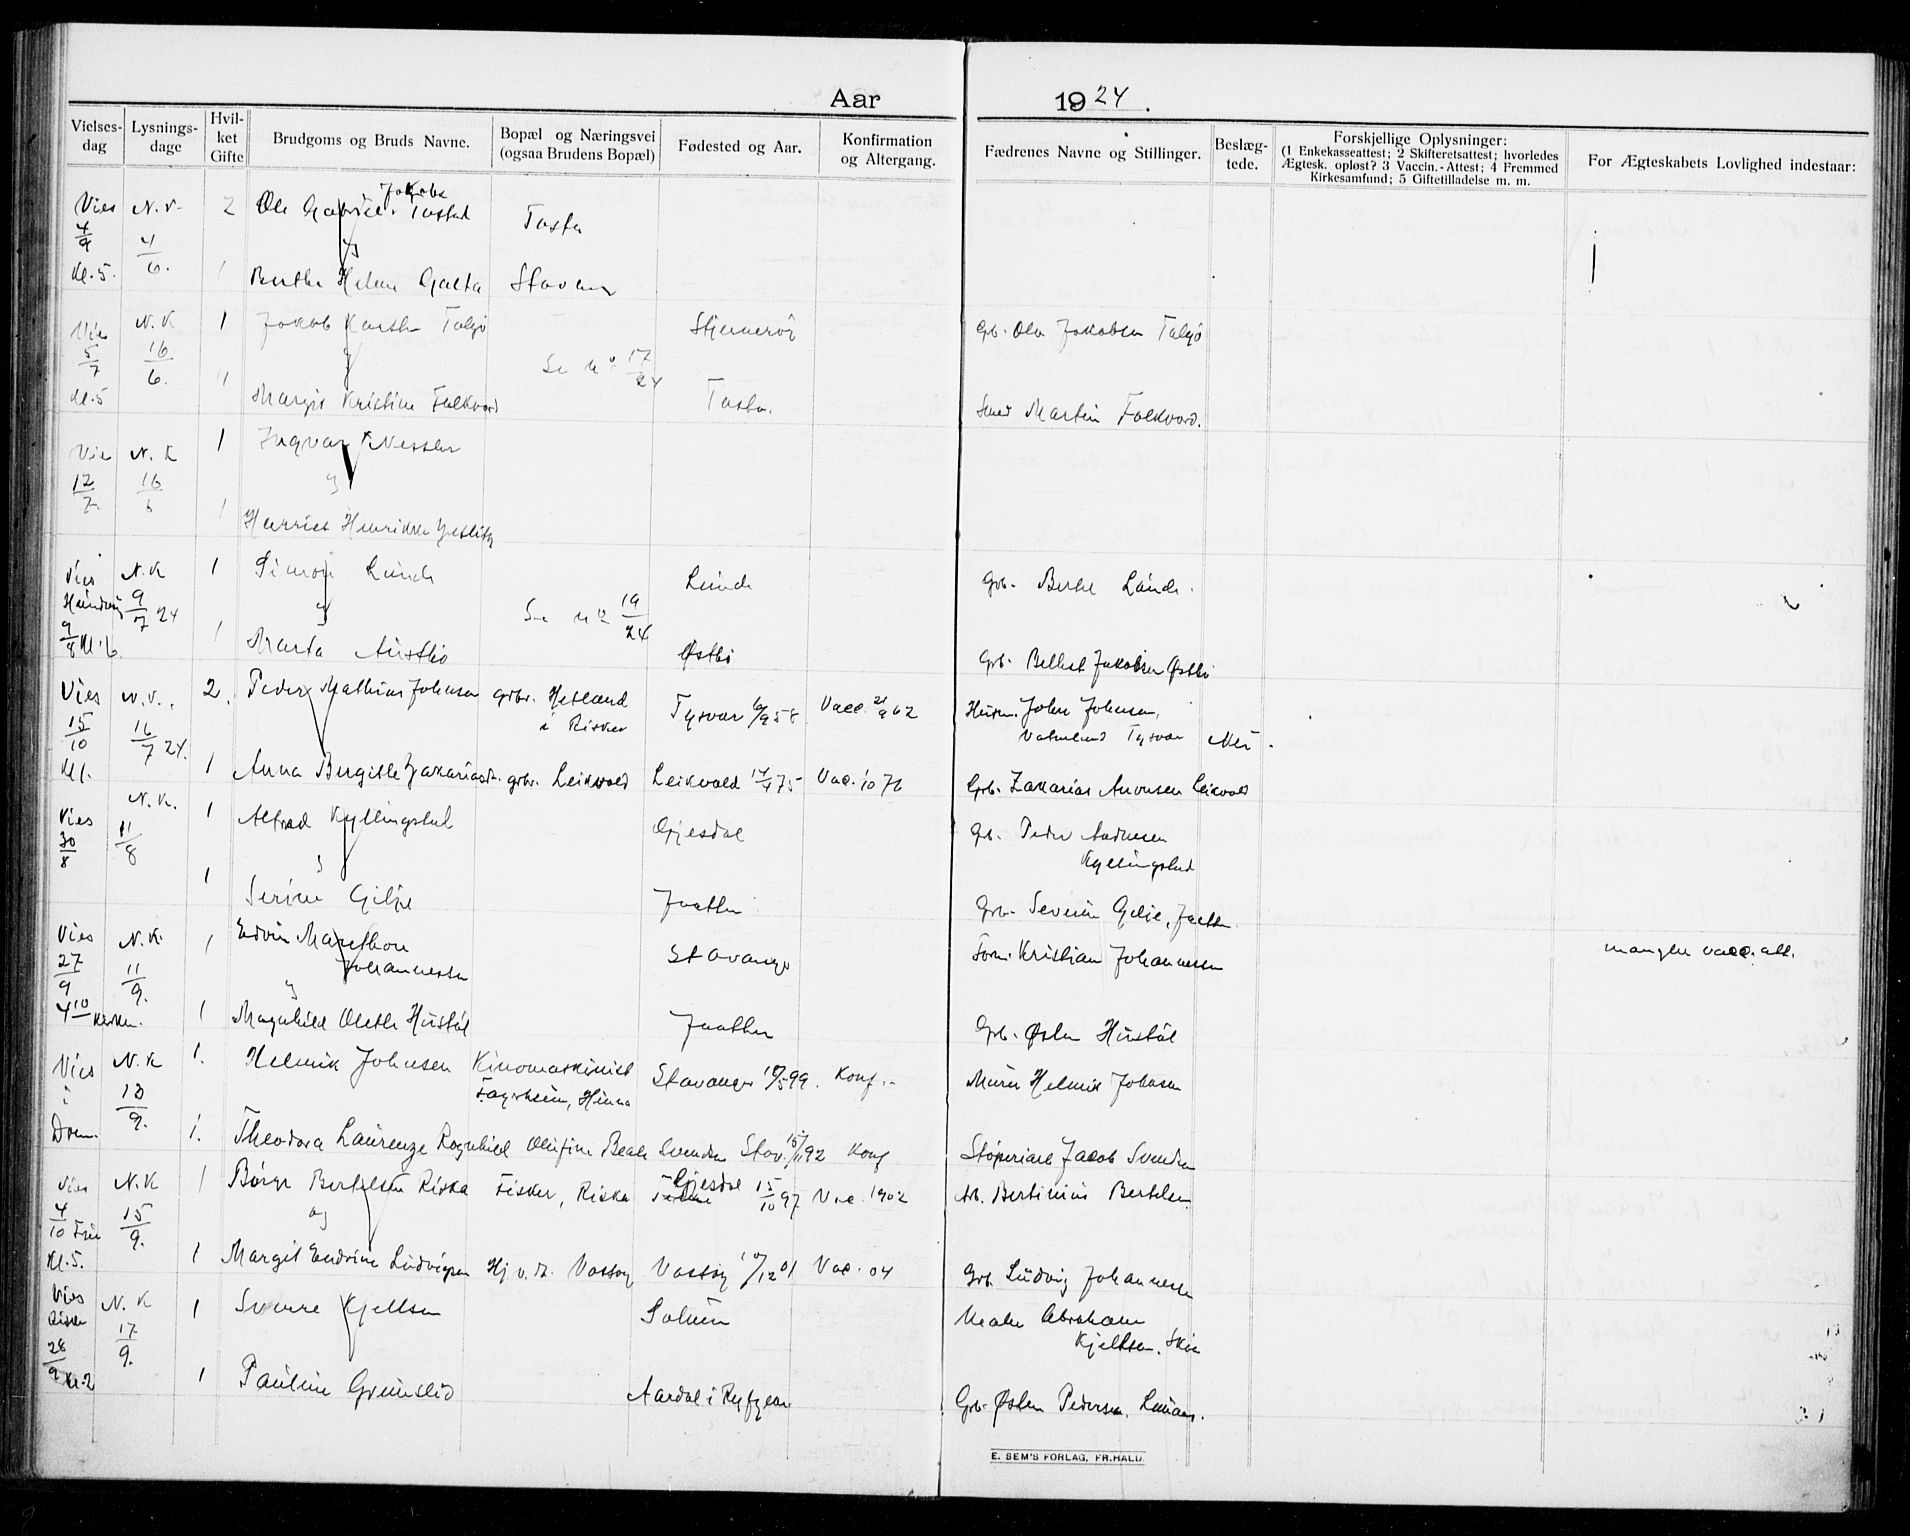 Aar 1924.
Vielsesdag
Lysningsdage
Hvilket Gifte
Brudgoms og Bruds Navne.
Bopæl og Næringsvei (ogsaa Brudens Bopæl)
Fødested og Aar.
Konfirmation og Altergang.
Fædrenes Navne og Stillinger.
Beslægtede.
Forskjellige Oplysninger:
(1 Enkekasseattest; 2 Skifteretsattest; hvorledes
Ægtesk. opløst? 3 Vaccin.-Attest; 4 Fremmed
Kirkesamfund; 5 Giftetilladelse m. m.
For Ægteskabets Lovlighed indestaar:
Jakobs
Vies N.V. 2 Ole Gabriel Tastad Tasta
4/9 4/6.
Kl. 5. 1 Berthe Helene Galta Stavang
Vies N.K 1 Jakob Karsten Talgø Stjernerøy Gb. Ola Jakobsen Talgø
5/7 16/6. Se No 17/24
Kl. 5 1 Margit Kristine Folkvord Tasta. Smed Martin Folkvord.
Vies N.K 1 Ingvar Nessler
12/7. 16/6 og
1 Harriet Henrikke
Vies N.K 1 Simon Lunde Lunde Grb. Bertel Lunde.
9/7 24 og Se No 19/24
9/8 Kl. 6. 1 Marta Austbø Østbø Grb. Jakobsen Østbø
Vies N.V. 2. Peder Mathias Johnsen Grbr. Hetland Tysvær 6/9 58 Vacc. 21/9 62 Husm. John Johnsen,
15/10 16/7 24. i Riska Tysvær Nei.
Kl. 1 Anna Birgitte Zakariasd. grbr. Leikvold Leikvold 14/4 75 Vac. 1/10 76 Grb. Zakarias Aronsen Leikvold
Vies N.K. 1 Alfred Kyllingstad Gjesdal Gb. Peder Andresen
30/8 11/8 og Kyllingstad
1 Serine Gilje Jaatten Grb. Severin Gilje, Jaatten.
Vies N.K. 1 Edvin Marethon Stavanger Form. Kristian Johannessen mangler vacc. att.
27/9 11/9. Johannessen
og
1 Magnhild Olette Hustøl Jaatten Grb. Østen Hustøl
Vies N.K 1. Helmik Johnsen Kinomaskinist Stavanger 17/5 99. Konf. Murer Helmik Johnsen
i 13/9. Fagerheim, Hinna
Dom. 1. Theodora Laurenze Ragnhild Olufine Beate Svendsen Stav. 15/11 92 Konf Støperiarb Jacob Svendsen
Vies N.K 1 Børge Bertelsen Riska Fisker, Riska Gjesdal 15/10 97 Vac. 1902 Arb. Bertinius Bertelsen.
4/10 15/9. og
Kl. 5. 1 Margit Endrine Ludvigsen Hj v. M. Vassøy Vassøy 17/12 01 Vac. 04 Grb. Ludvig Johannessen
Vies N.K 1 Sverre Kjellsen Solum Maler Abraham
Riska 17/9. Kjellsen. Skien
28/9 Kl. 2 1 Pauline Grimslid Aardal i Ryfylke Grb. Østen Pedersen.
E. SEM'S FORLAG, FR.HALD.